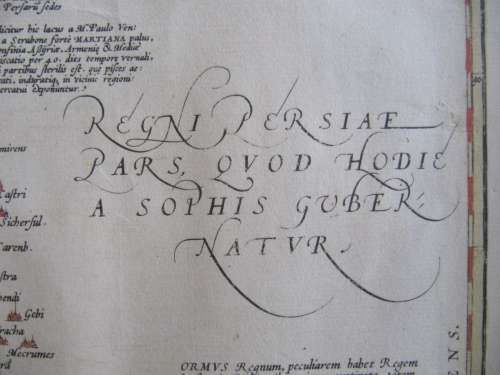 Persarū sedes
dicitur hic lacus a M. Paulo Ven:
a Strabone forte MARTIANA palus,
Assyriæ, Armeniæ & Mediæ
piscatio per 40. dies tempore vernali,
partibus sterilis est. que pisces ae:
induratiq, in vicinæ regioni
exponuntur.
REGNI PERSIAE
PARS, QVOD HODIE
A SOPHIS GUBER-
NATVR.
Sichersul
Carenb.
Gebi
Mecrumes
ORMVS Regnum, peculiarem habet Regem
ENS.